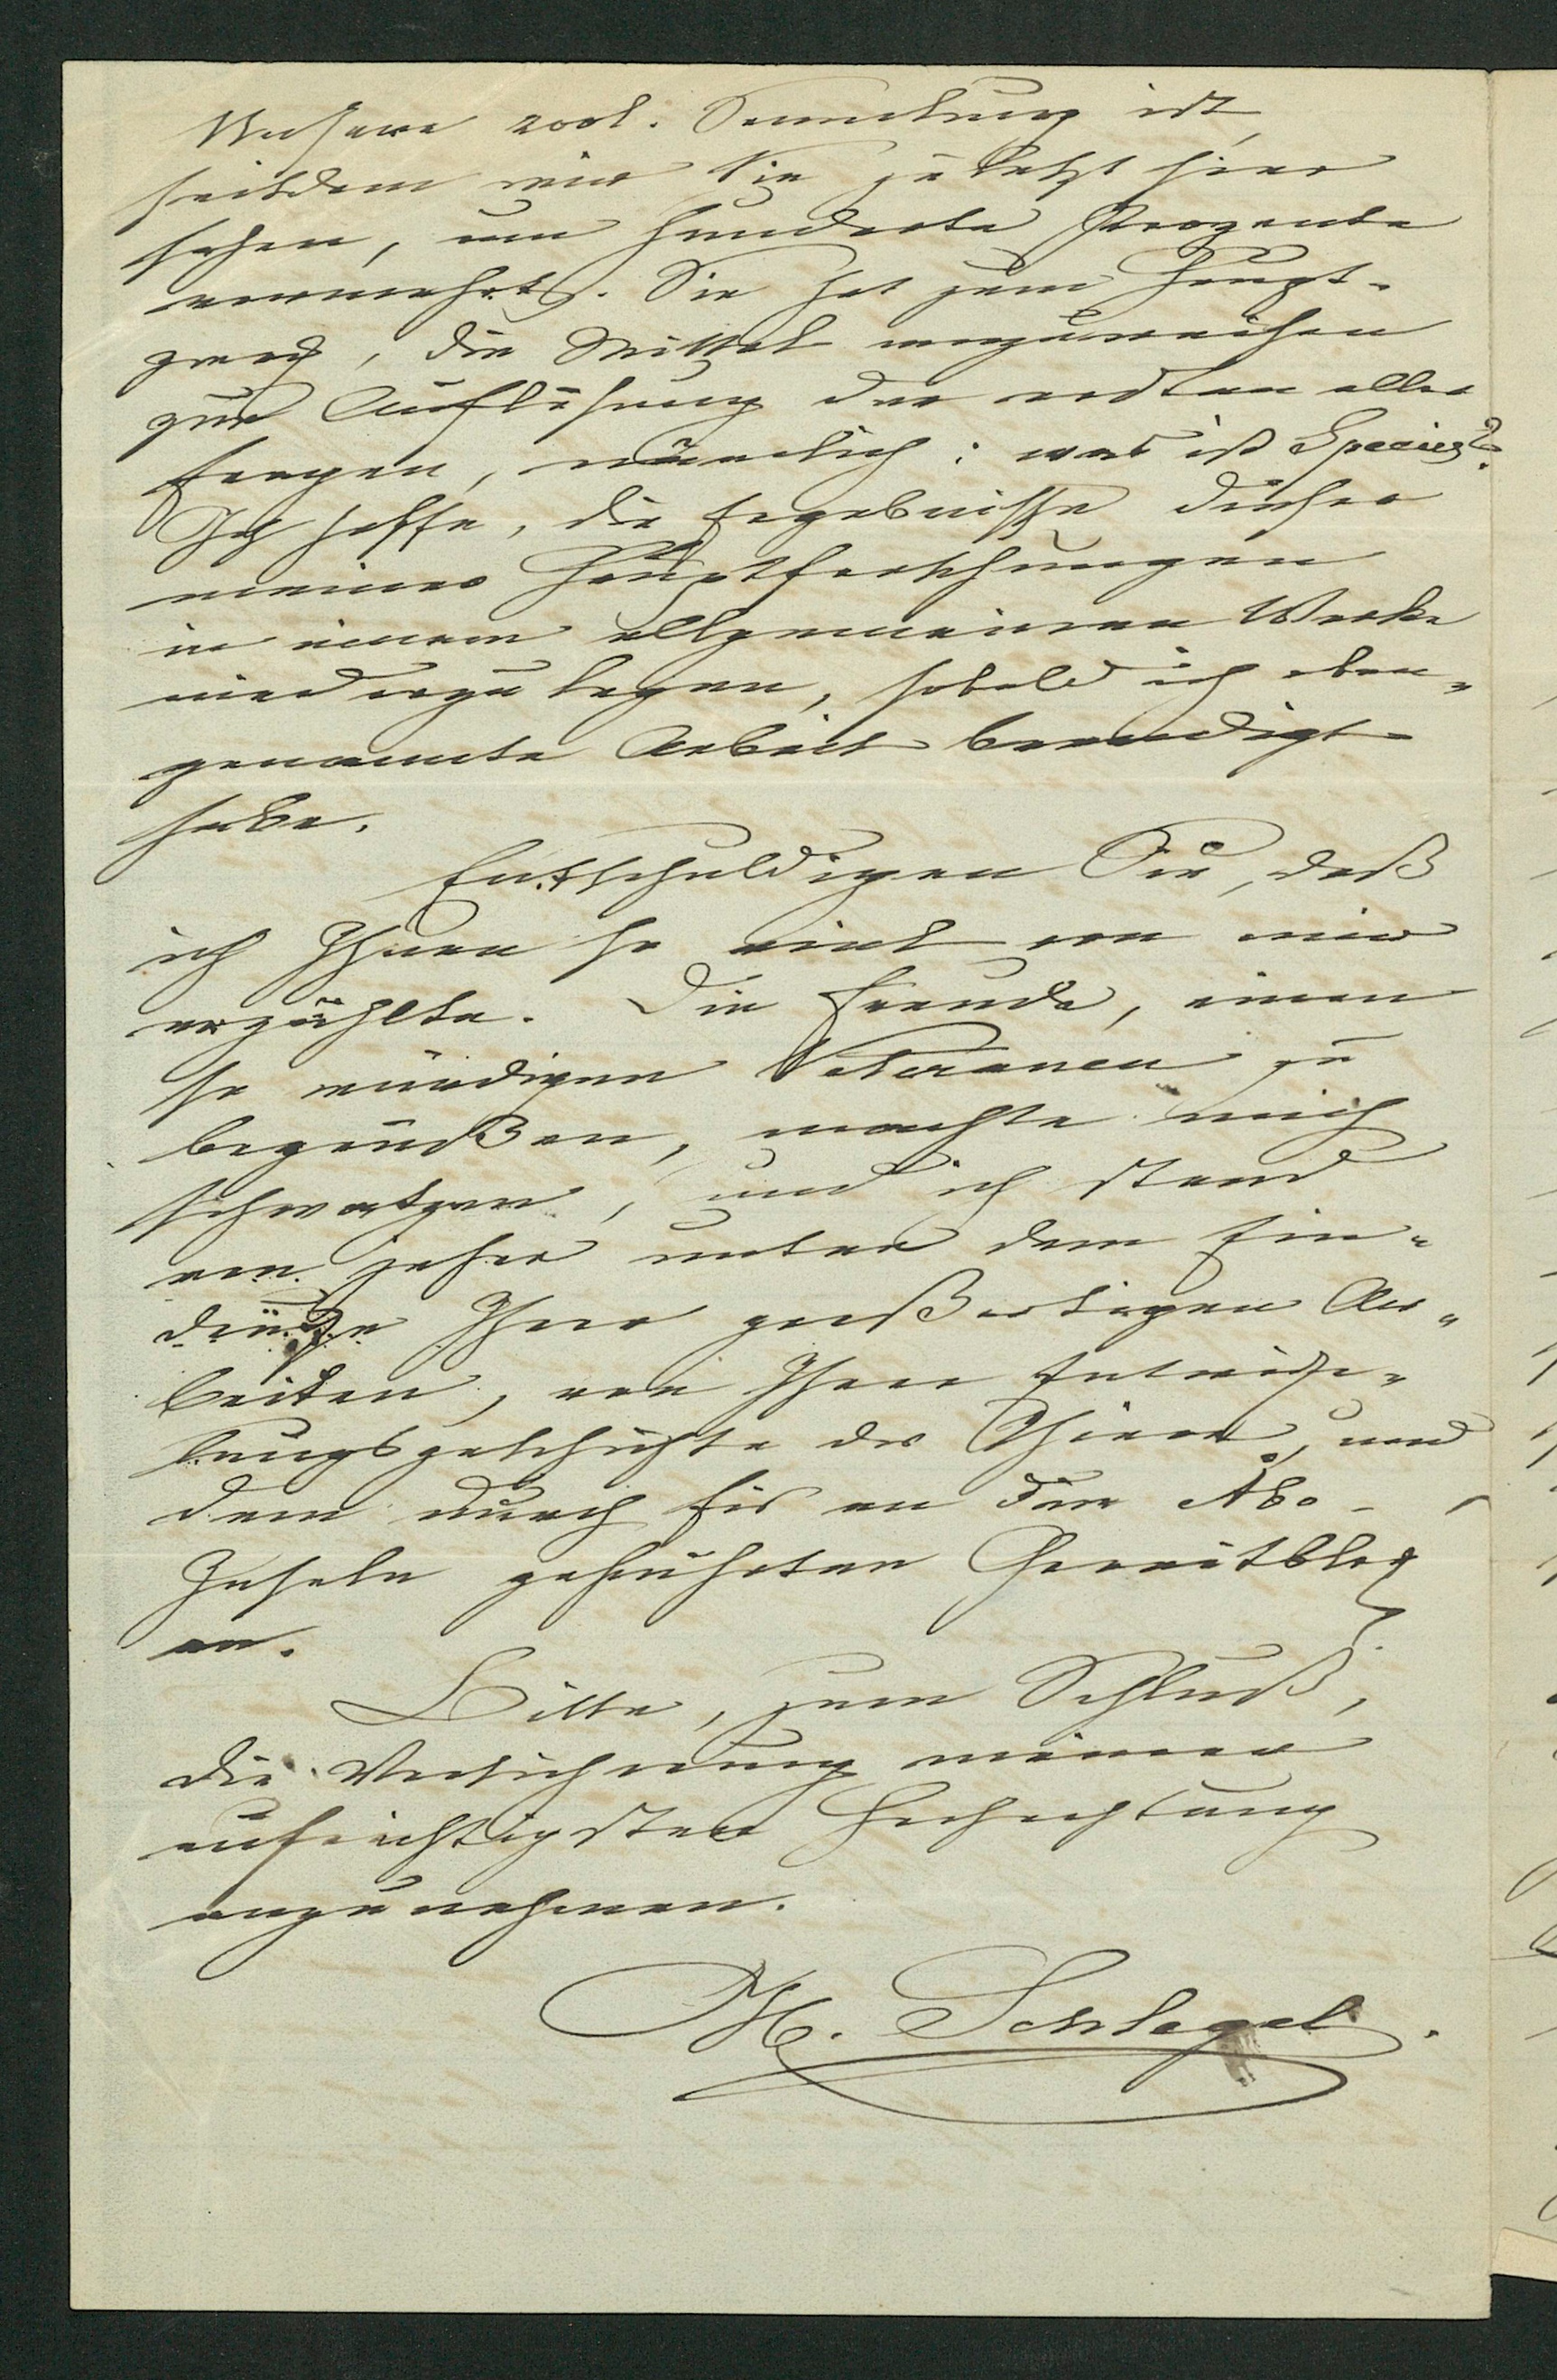 Unsere zool. Sammlung ist,
seitdem wir Sie zuletzt hier
sahen, um hunderte Prozente
vermehrt. Sie hat zum Haupt-
zweck, die Mittel anzuweisen
zur Auflösung der ersten aller
Fragen, nämlich: was ist Species?
Ich hoffe, die Ergebnisse dieser
meiner Hauptforschungen
in einem allgemeinen Werke
niederzulegen, sobald ich oben-
genannte Arbeit beendigt
habe.
Entschuldigen Sie, daß
ich Ihnen so viel von mir
erzählte. Die Freude, einen
so würdigen Veteranen zu
begrüßen, machte mich
schwatzen, und ich stand
von jeher unter dem Ein-
drucke Ihrer großartigen Ar-
beiten, von Ihrer Entwicke-
lungsgeschichte der Thiere, und
dem durch Eis an die Åbo-
Inseln geführten Granitblock
an.
Bitte, zum Schluß,
die Versicherung meiner
aufrichtigsten Hochachtung
anzunehmen.
H. Schlegel.